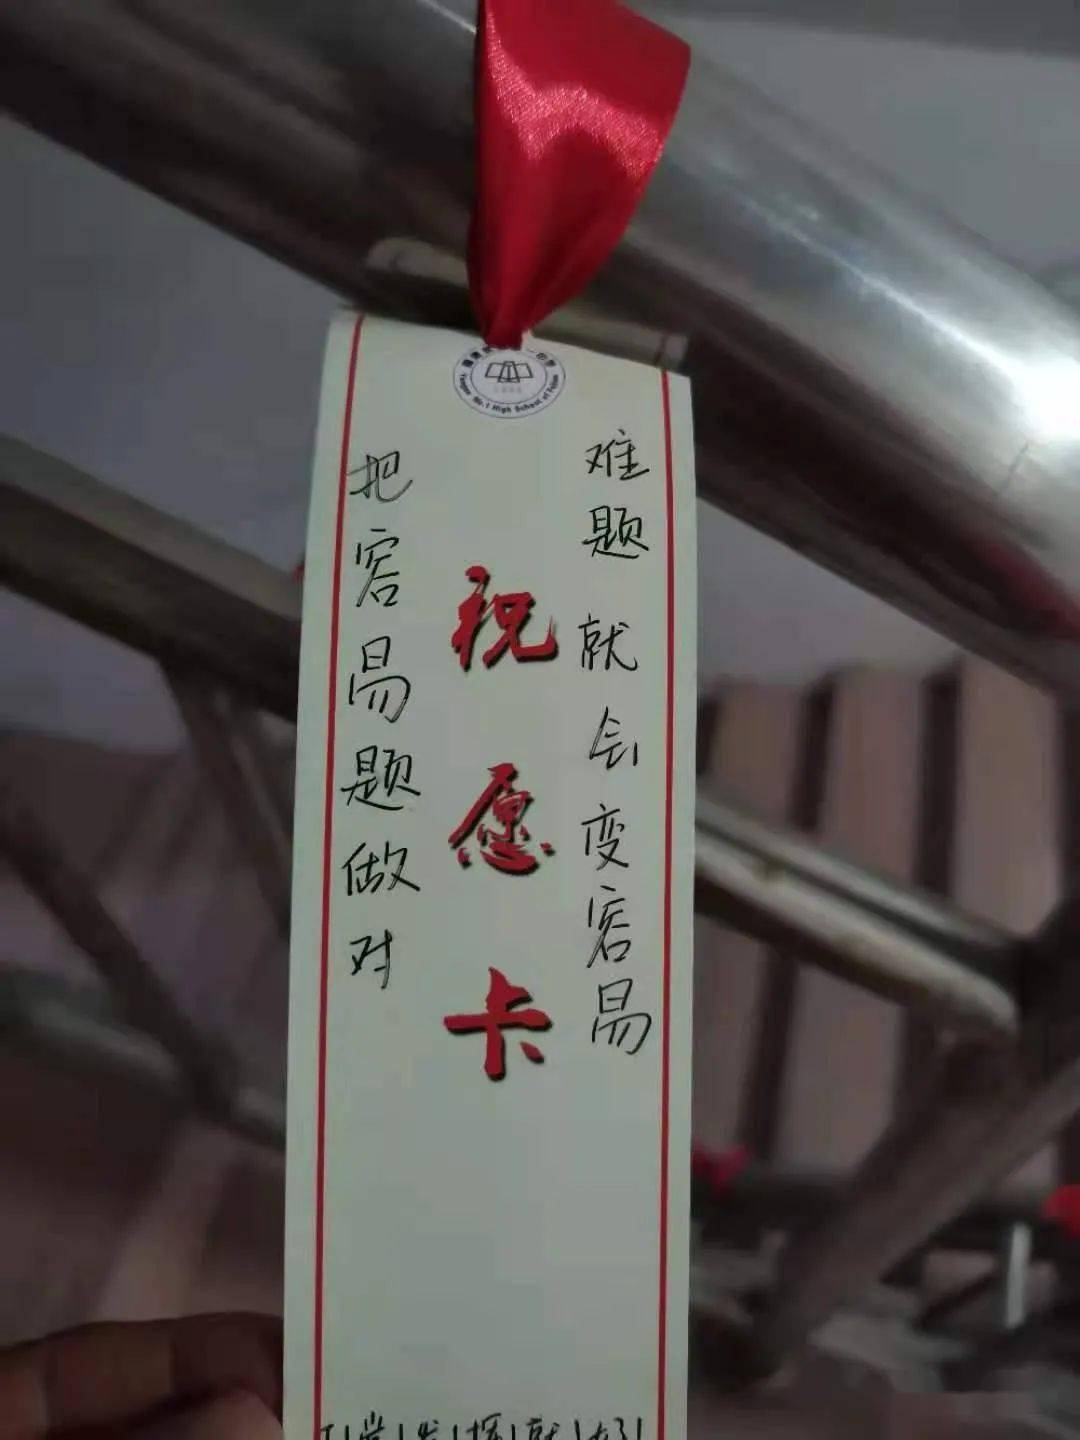 No.1 High School of Fujian
祝愿卡
把容易题做对
难题就会变容易